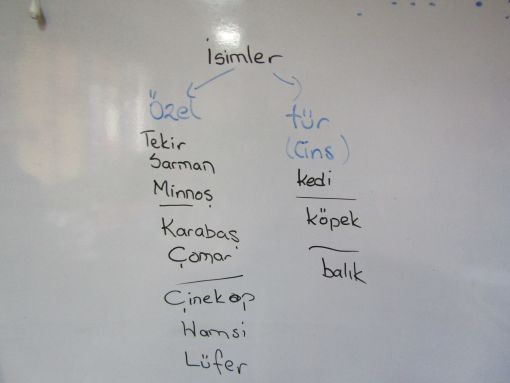 İsimler
Özel
Tekir
Sarman
Minnoş
Karabaş
Çomar
Çinekop
Hamsi
Lüfer
tür
(Cins)
kedi
köpek
balık